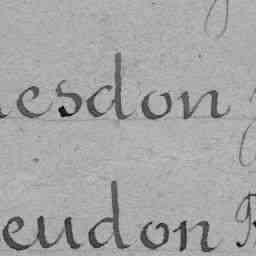 esdon
eudon